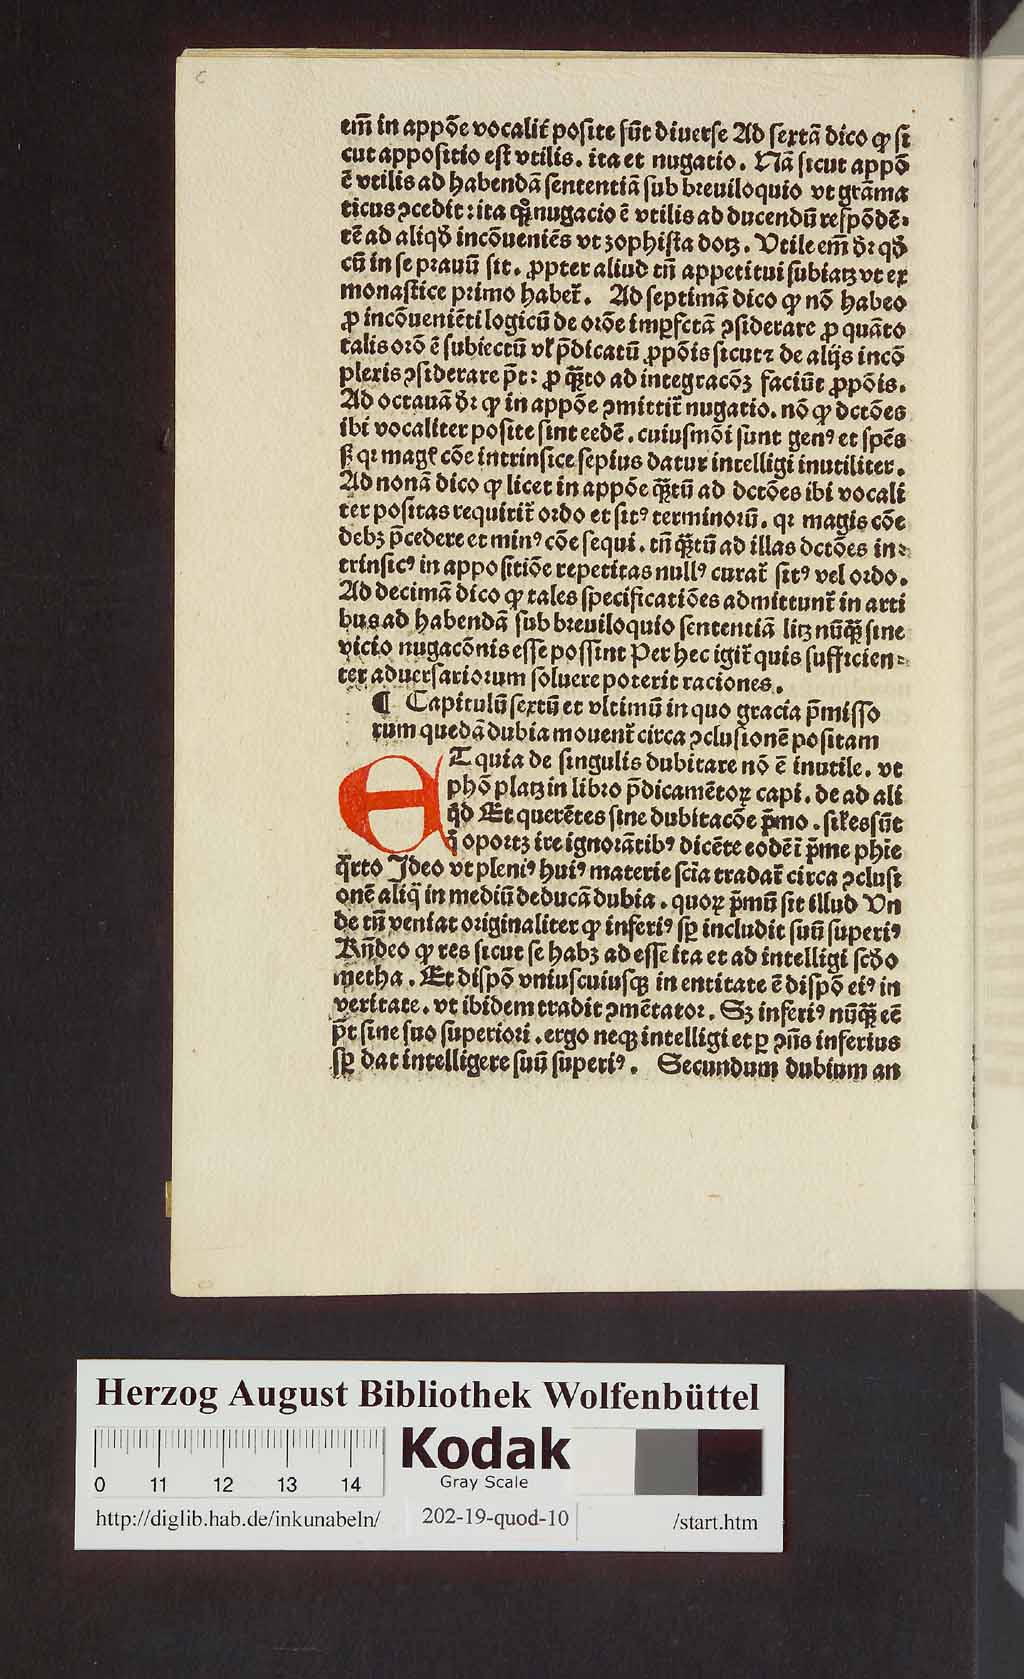 em̄ in appõe vocalit̃ posite sũt diuerse Ad sextã dico ꝙ si
cut appositio est vtilis. ita et nugatio. Nã sicut appõ
ẽ vtilis ad habendã sententiã sub breuiloquio vt grãma
ticus ꝯcedit: ita qñꝫ nugacio ẽ vtilis ad ducendũ respõdẽ⸗
tẽ ad aliqḋ incõueniẽs vt zophista docꝫ. Vtile em̄ dr̃ qḋ
cũ in se prauũ sit. ꝓpter aliud tñ appetitui subiacꝫ vt ex
monastice primo habet̃. Ad septimã dico ꝙ nõ habeo
ꝓ incõueniẽti logicũ de orõe imꝑfctã ꝯsiderare ꝓ quãto
talis orõ ẽ subiectũ vl̃ p̃dicatũ ꝓpõis sicut⁊ de alijs incõ
plexis ꝯsiderare pt̃: ꝓ q̃ꝫto ad integracõꝫ faciũt ꝓpõis.
Ad octauã dr̃ ꝙ in appõe ꝯmittit̃ nugatio. nõ ꝙ dctões
ibi vocaliter posite sint eedẽ. cuiusmõi sunt genꝰ et spẽs
sꝫ qꝛ magꝭ cõe intrinsice sepius datur intelligi inutiliter.
Ad nonã dico ꝙ licet in appõe q̃ꝫtũ ad dctões ibi vocali
ter positas requirit̃ ordo et sitꝰ terminorũ. qꝛ magis cõe
debꝫ p̃cedere et minꝰ cõe sequi. tñ q̃ꝫtũ ad illas dctões in⸗
trinsicꝰ in appositiõe repetitas nullꝰ curat̃ sitꝰ vel ordo.
Ad decimã dico ꝙ tales specificatiões admittunt̃ in arti
bus ad habendã sub breuiloquio sententiã licꝫ nũq̃ꝫ sine
vicio nugacõnis esse possint Per hec igit̃ quis sufficien⸗
ter aduersariorum soluere poterit raciones.
¶ Capitulũ sextũ et vltimũ in quo gracia p̃misso
rum quedã dubia mouent̃ circa ꝯclusionẽ positam
ET quia de singulis dubitare nõ ẽ inutile. vt
phõ placꝫ in libro p̃dicamẽtoꝝ capi. de ad ali
q̃d Et querẽtes sine dubitacõe p̃mo. sil̃es sũt
q̃ oportꝫ ire ignorãtibꝰ dicẽte eodẽ ĩ p̃me phĩe
q̃rto Ideo vt pleniꝰ huiꝰ materie scĩa tradat̃ circa ꝯclusi
onẽ aliq̃ in mediũ deducã dubia. quoꝝ p̃mũ sit illud Vn
de tñ veniat originaliter ꝙ inferiꝰ sꝑ includit suũ superiꝰ
Rñdeo ꝙ res sicut se habꝫ ad esse ita et ad intelligi scḋo
metha. Et dispõ vniuscuiusqꝫ in entitate ẽ dispõ eiꝰ in
veritate. vt ibidem tradit ꝯmẽtator. Sꝫ inferiꝰ nũq̃ꝫ eẽ
pt̃ sine suo superiori. ergo neqꝫ intelligi et ꝑ ꝯñs inferius
sꝑ dat intelligere suũ superiꝰ. Secundum dubium an
Herzog August Bibliothek Wolfenbüttel
0 11 12 13 14
Kodak
Gray Scale
http://diglib.hab.de/inkunabeln/ 202-19-quod-10 /start.htm